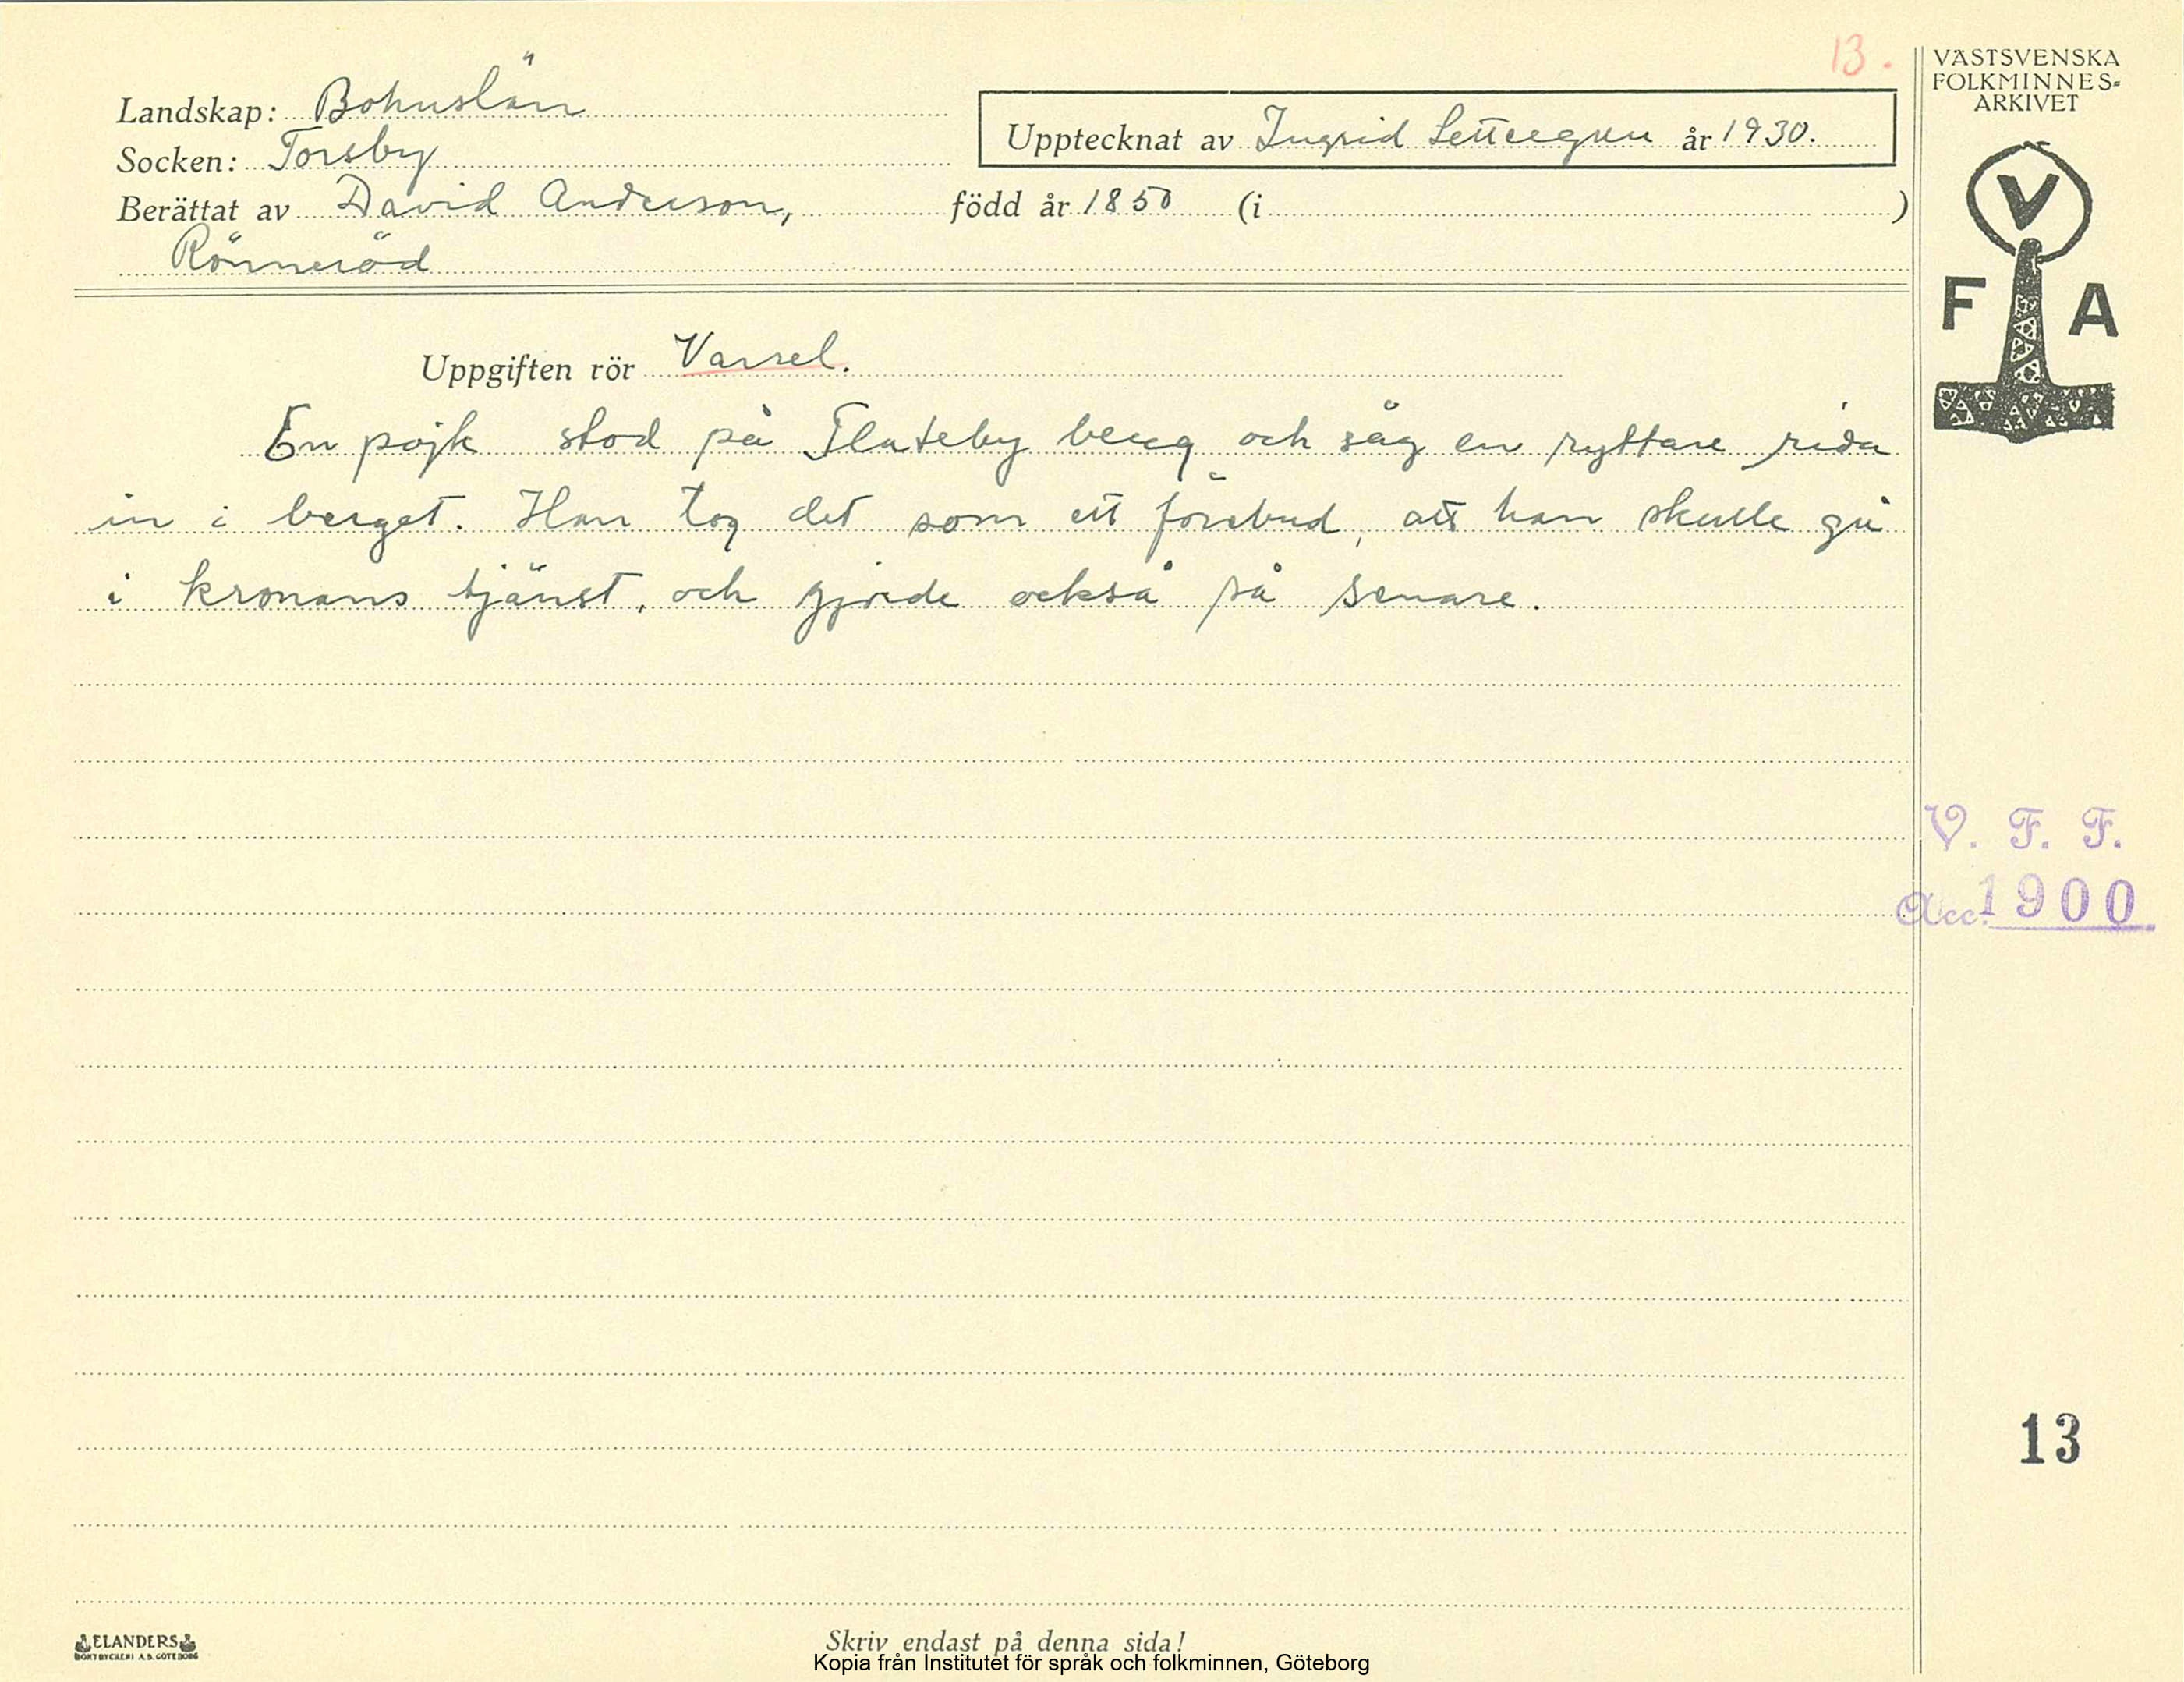 13.
Landskap: Bohuslän
Socken: Torsby
Berättat av David Anderson,
Rönneröd
Upptecknat av Ingrid Settergren år 1930.
född år 1850 (i )
Uppgiften rör Varsel.
En pojk stod på Flateby berg och såg en ryttare rida
in i berget. Han tog det som ett förebud, att han skulle gå
i kronans tjänst, och gjorde också så senare.
VÄSTSVENSKA
FOLKMINNES-
ARKIVET
V
F A
V. F. F.
Acc. 1900
13
ELANDERS
BOKTRYCKERI A.B. GÖTEBORG
Skriv endast på denna sida!
Kopia från Institutet för språk och folkminnen, Göteborg